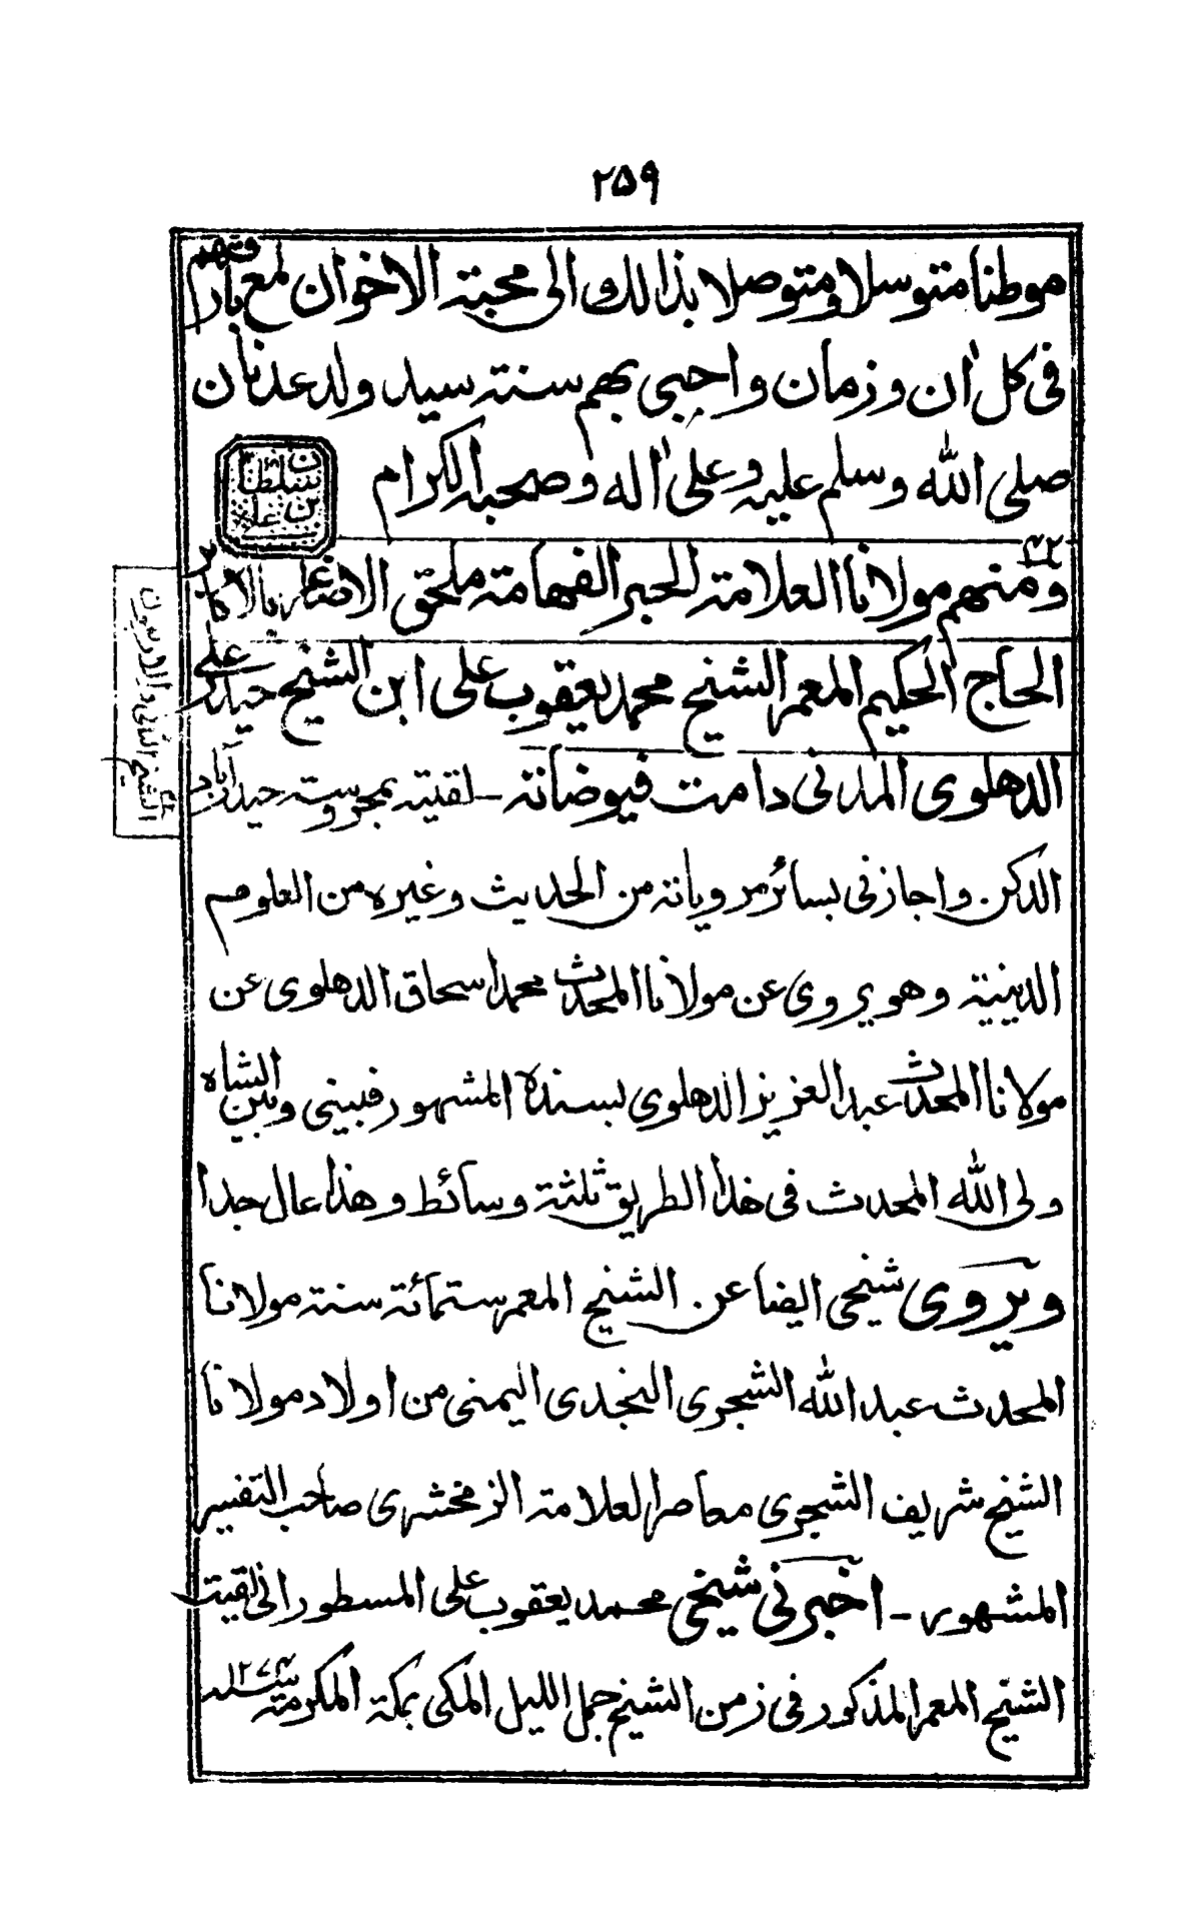 ۲۵۹
موطنا متوسلا ومتوصلا بذالك الى محبة الاخوان لمع بارقتهم
فى كل ان و زمان و احيى بهم سنة سيد ولد عدنان
صلى الله وسلم عليه وعلى اله وصحبه الكرام
سلطان بن على
۴۲
ومنهم مولانا العلامة الحبر الفهامة ملحق الاصاغر بالاكابر
الحاج الحكيم المعمر الشيخ محمد يعقوب على ابن الشيخ حيدر على
الدهلوى المدنى دامت فيوضاته ـ لقيته بمحروسة حيدرآباد
الشيخ الثانى والاربعون
الدكن واجازنى بسائر مروياته من الحديث وغيره من العلوم
الدينية وهو يروى عن مولانا المحدث محمد اسحاق الدهلوى عن
مولانا المحدث عبد العزيز الدهلوى بسنده المشهور فبينى وبين الشاه
ولى الله المحدث فى هذا الطريق ثلثة وسائط وهذا عال جدا
ويروى شيخى ايضا عن الشيخ المعمر ستمائة سنة مولانا
المحدث عبد الله الشجرى النجدى اليمنى من اولاد مولانا
الشيخ شريف الشجرى معاصر العلامة الزمخشرى صاحب التفسير
المشهور ـ اخبرنى شيخى محمد يعقوب على المسطور انى لقيت
الشيخ المعمر المذكور فى زمن الشيخ جمل الليل المكى بمكة المكرمة